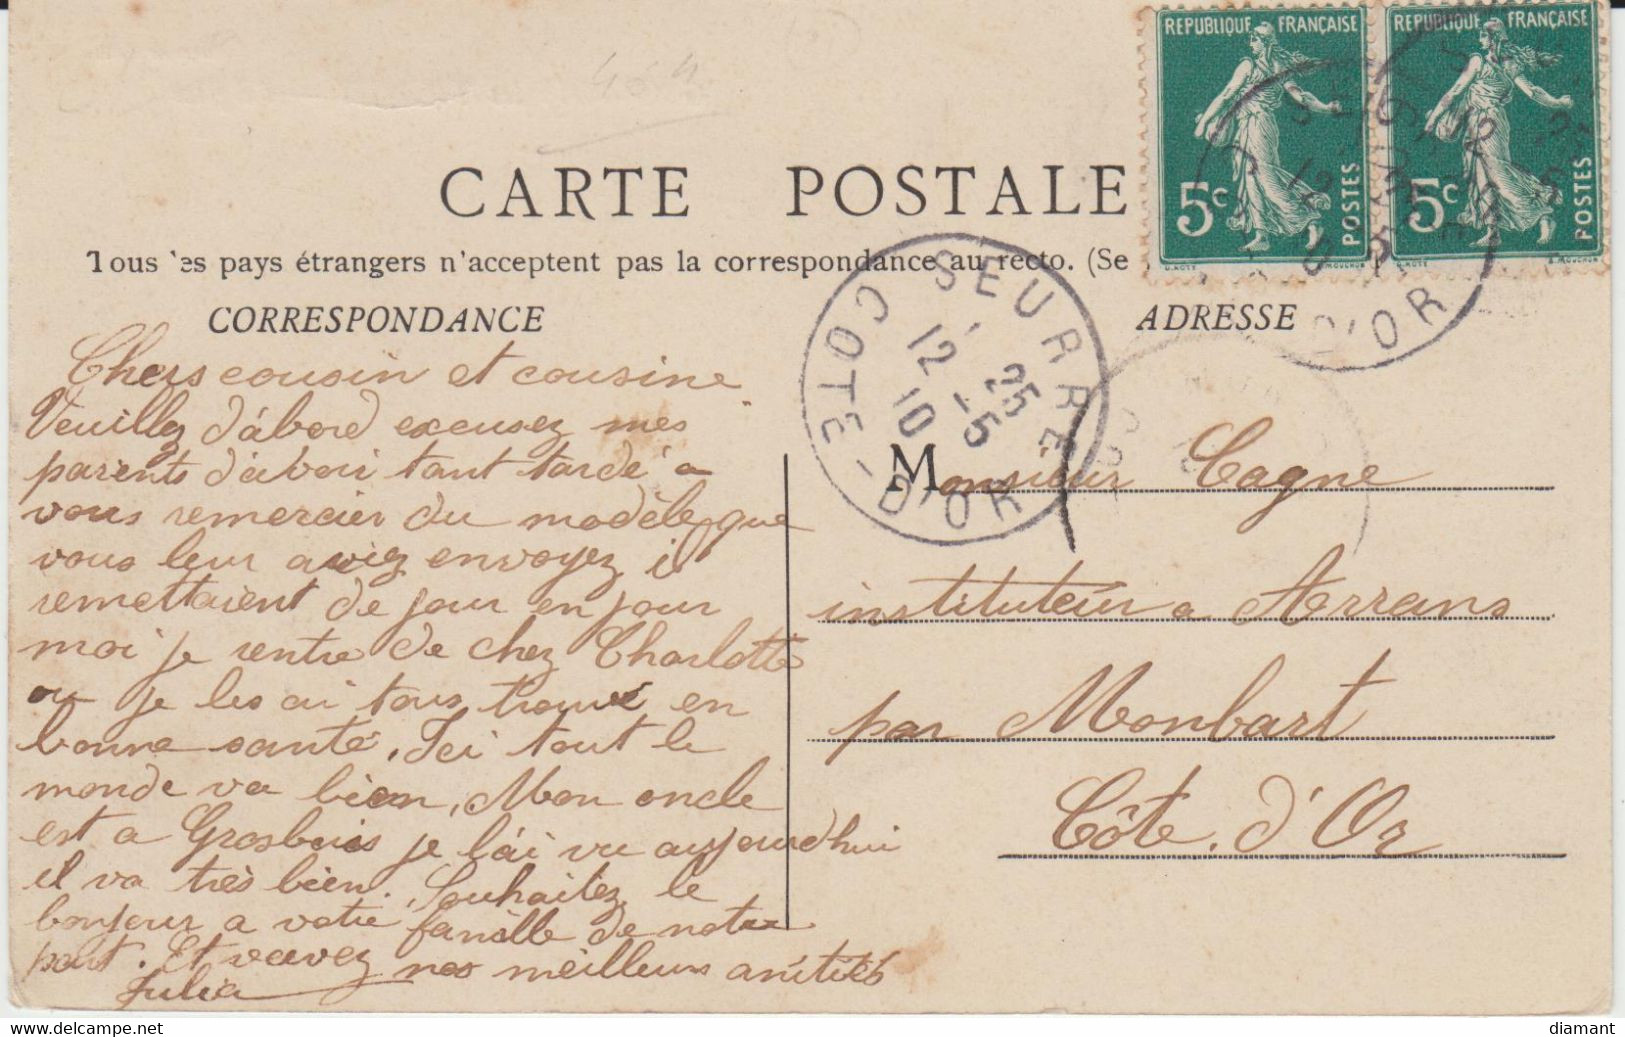 464
CARTE POSTALE
Tous les pays étrangers n'acceptent pas la correspondance au recto. (Se
CORRESPONDANCE
ADRESSE
REPUBLIQUE FRANÇAISE
5c
POSTES
REPUBLIQUE FRANÇAISE
5c
POSTES
SEURRE
12 25
10 -5
COTE-D'OR
D'OR
Chers cousin et cousine
Veuillez d'abord excusez mes
parents d'avoir tant tardé a
vous remercier du modèle que
vous leur aviez envoyez il
remettaient de jour en jour
moi je rentre de chez Charlotte
ou je les ai tous trouvé en
bonne santé. Ici tout le
monde va bien, Mon oncle
est a Grosbois je l'ai vu aujourdhui
il va très bien. Souhaitez le
bonjour a votre famille de notre
part. Et recevez nos meilleurs amitiés
Julia
Monsieur Cagne
instituteur a Arrans
par Monbart
Côte. d'Or
diamant
www.delcampe.net